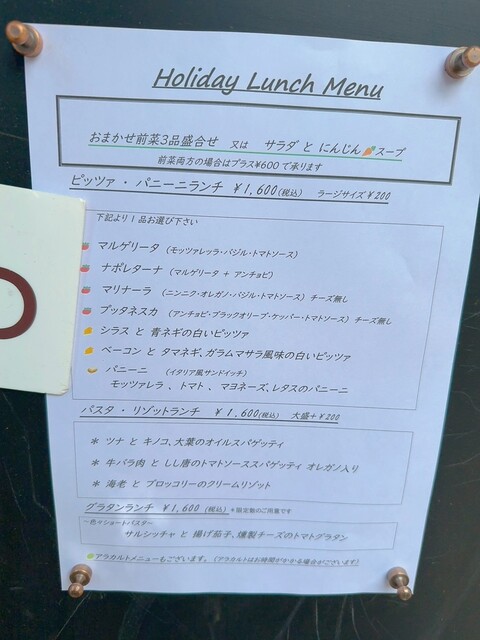 Holiday Lunch Menu
おまかせ前菜3品盛合せ 又は サラダ と にんじん🥕スープ
前菜両方の場合はプラス¥600で承ります
ピッツァ・パニーニランチ ¥1,600(税込) ラージサイズ¥200
下記より1品お選び下さい
マルゲリータ (モッツァレッラ・バジル・トマトソース)
ナポレターナ (マルゲリータ + アンチョビ)
マリナーラ (ニンニク・オレガノ・バジル・トマトソース) チーズ無し
プッタネスカ (アンチョビ・ブラックオリーブ・ケッパー・トマトソース) チーズ無し
シラス と 青ネギの白いピッツァ
ベーコン と タマネギ、ガラムマサラ風味の白いピッツァ
パニーニ (イタリア風サンドイッチ)
モッツァレラ 、トマト 、マヨネーズ、レタスのパニーニ
パスタ・リゾットランチ ¥1,600(税込) 大盛+¥200
* ツナ と キノコ、大葉のオイルスパゲッティ
* 牛バラ肉 と しし唐のトマトソーススパゲッティ オレガノ入り
* 海老 と ブロッコリーのクリームリゾット
グラタンランチ ¥1,600 (税込) *限定数のご用意です
~色々ショートパスタ~
サルシッチャ と 揚げ茄子、燻製チーズのトマトグラタン
アラカルトメニューもございます。(アラカルトはお時間がかかる場合がございます)